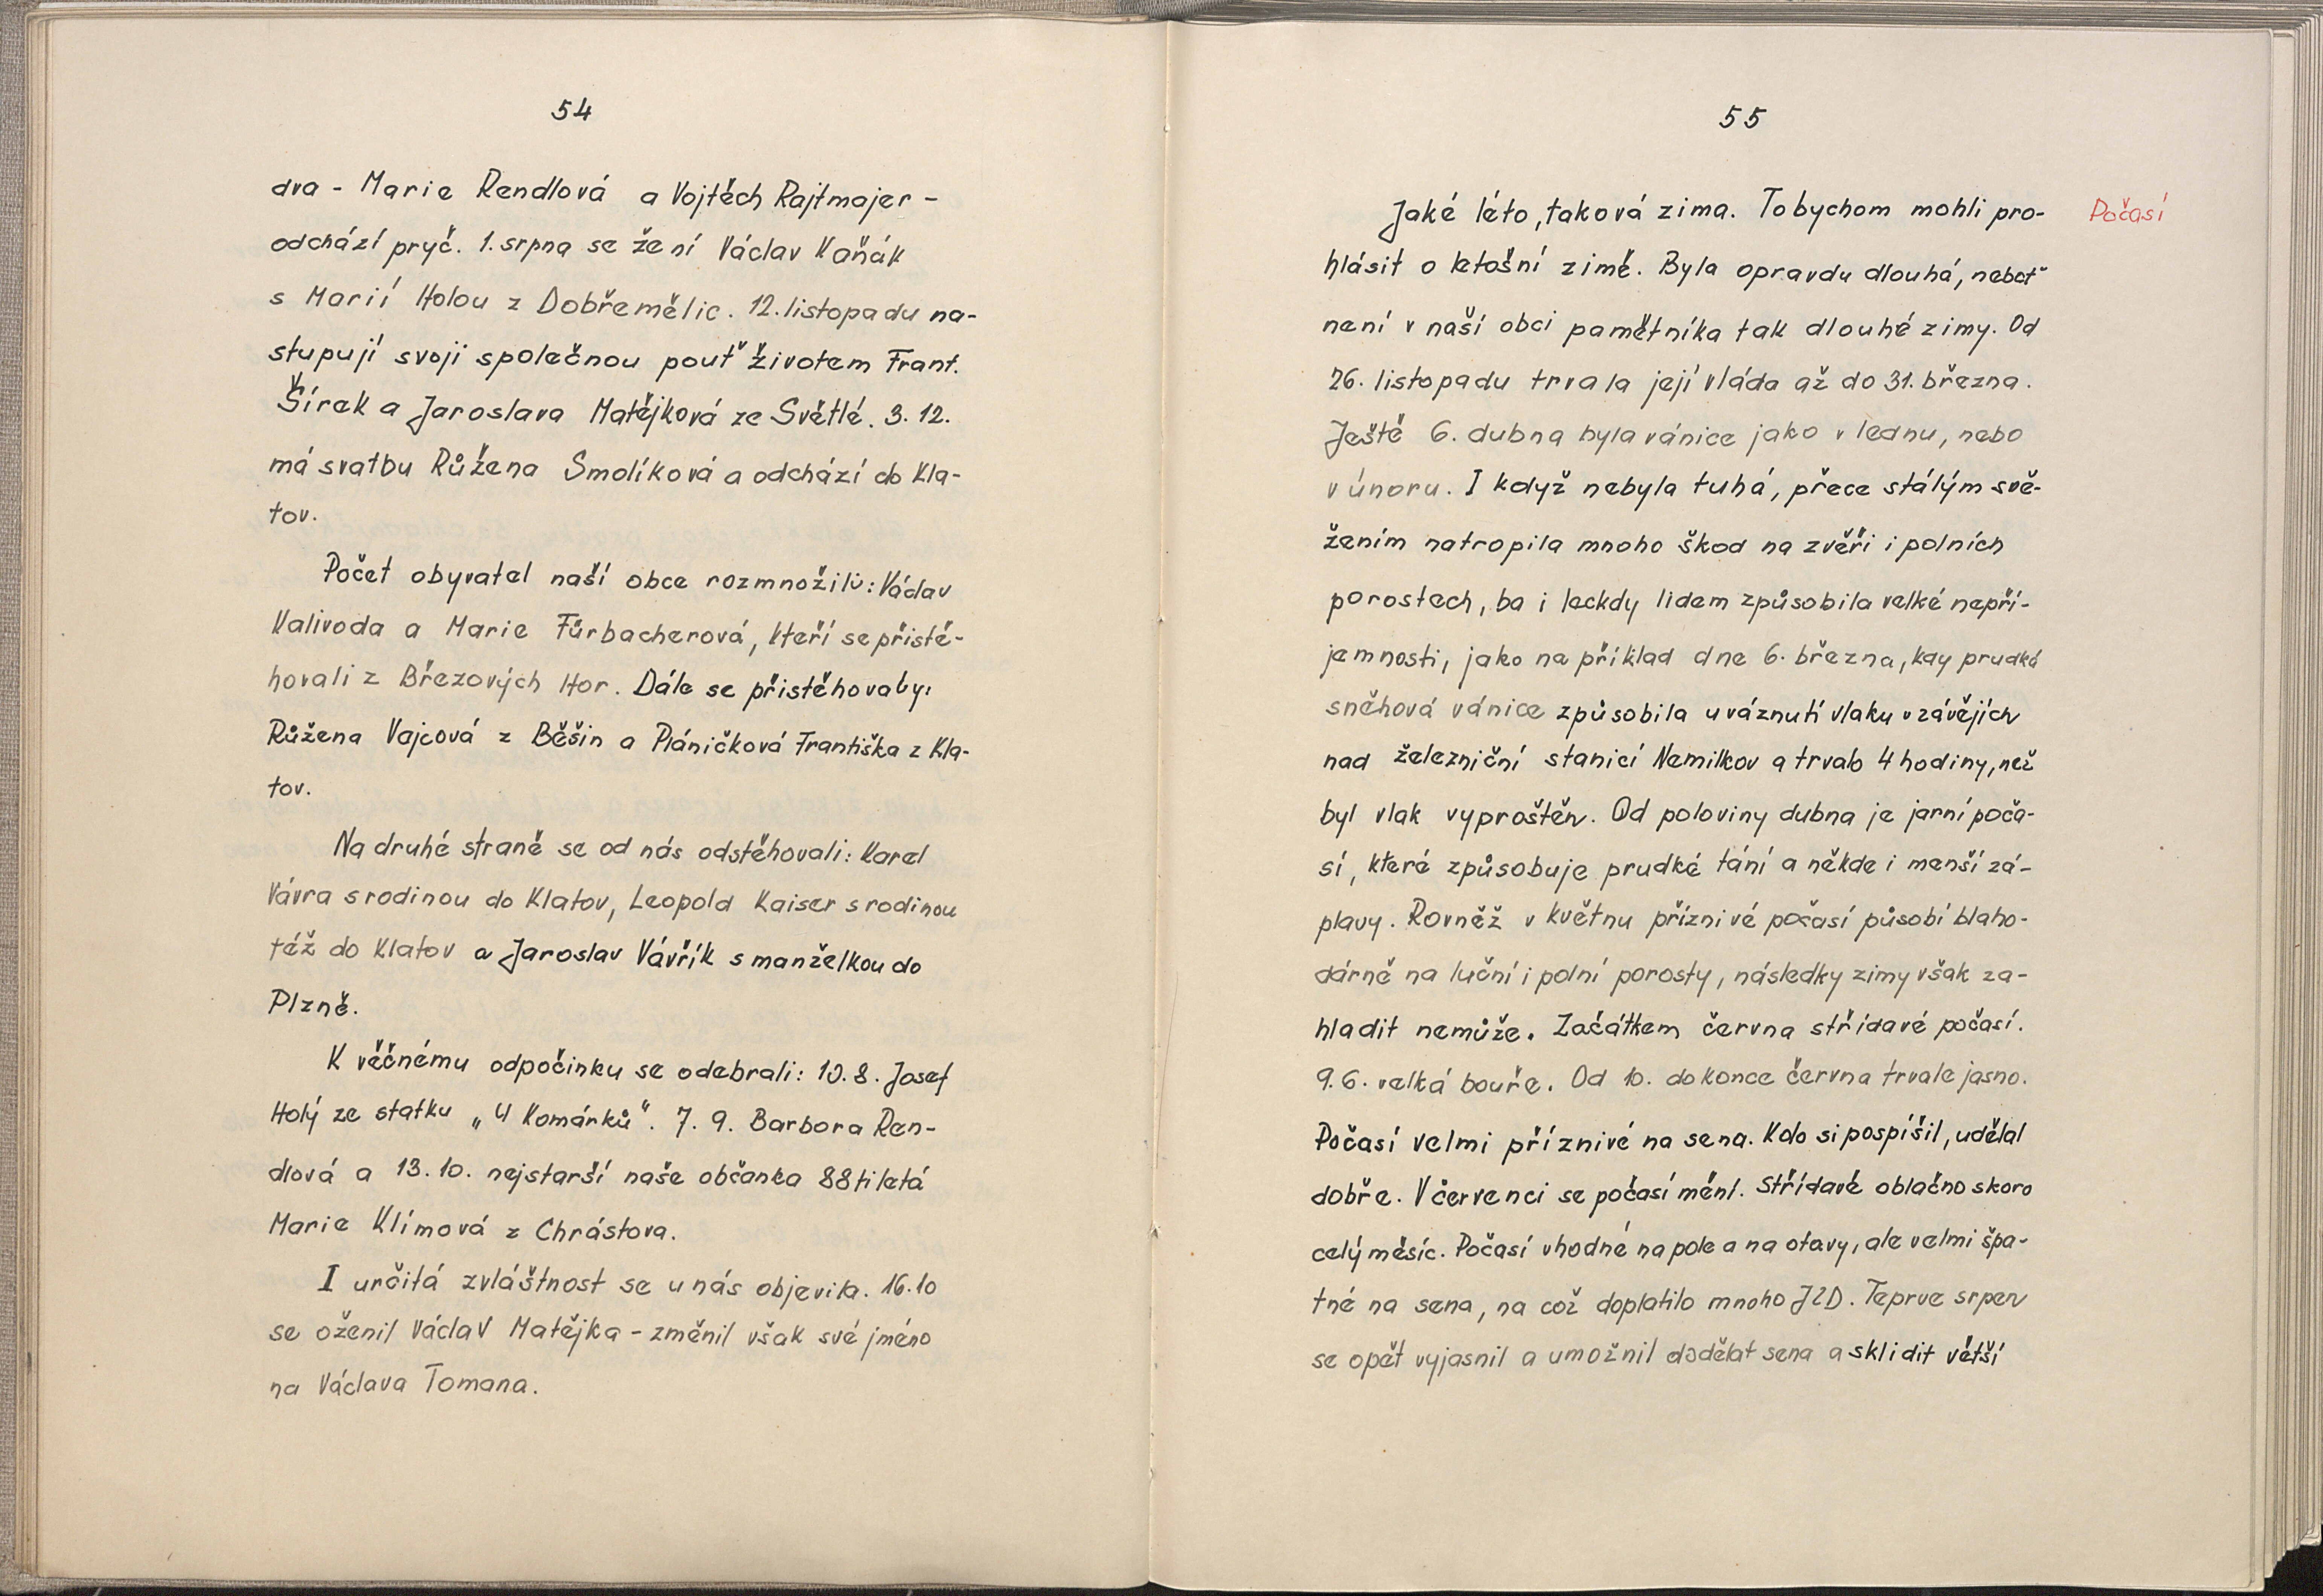 54
dva - Marie Rendlová a Vojtěch Rajtmajer -
odchází pryč. 1. srpna se žení Václav Kaňák
s Marií Holou z Dobřemělic. 12. listopadu na-
stupují svoji společnou pouť životem Frant.
Šírek a Jaroslava Matějková ze Světlé. 3. 12.
má svatbu Růžena Smolíková a odchází do Kla-
tov.
Počet obyvatel naší obce rozmnožili: Václav
Kalivoda a Marie Fürbacherová, kteří se přistě-
hovali z Březových Hor. Dále se přistěhovaly:
Růžena Vajcová z Běšin a Pláničková Františka z Kla-
tov.
Na druhé straně se od nás odstěhovali: Karel
Vávra s rodinou do Klatov, Leopold Kaiser s rodinou
též do Klatov a Jaroslav Vávřík s manželkou do
Plzně.
K věčnému odpočinku se odebrali: 10. 8. Josef
Holý ze statku „U Komárků“. 7. 9. Barbora Ren-
dlová a 13. 10. nejstarší naše občanka 88tiletá
Marie Klímová z Chrástova.
I určitá zvláštnost se u nás objevila. 16. 10
se oženil Václav Matějka - změnil však své jméno
na Václava Tomana.
55
Počasí
Jaké léto, taková zima. To bychom mohli pro-
hlásit o letošní zimě. Byla opravdu dlouhá, neboť
není v naší obci pamětníka tak dlouhé zimy. Od
26. listopadu trvala její vláda až do 31. března.
Ještě 6. dubna byla vánice jako v lednu, nebo
v únoru. I když nebyla tuhá, přece stálým svě-
žením natropila mnoho škod na zvěři i polních
porostech, ba i leckdy lidem způsobila velké nepří-
jemnosti, jako na příklad dne 6. března, kdy prudká
sněhová vánice způsobila uváznutí vlaku v závějích
nad železniční stanicí Nemilkov a trvalo 4 hodiny, než
byl vlak vyproštěn. Od poloviny dubna je jarní poča-
sí, které způsobuje prudké tání a někde i menší zá-
plavy. Rovněž v květnu příznivé počasí působí blaho-
dárně na luční i polní porosty, následky zimy však za-
hladit nemůže. Začátkem června střídavé počasí.
9. 6. velká bouře. Od 10. do konce června trvale jasno.
Počasí velmi příznivé na sena. Kdo si pospíšil, udělal
dobře. V červenci se počasí mění. Střídavě oblačno skoro
celý měsíc. Počasí vhodné na pole a na otavy, ale velmi špa-
tné na sena, na což doplatilo mnoho JZD. Teprve srpen
se opět vyjasnil a umožnil dodělat sena a sklidit větší